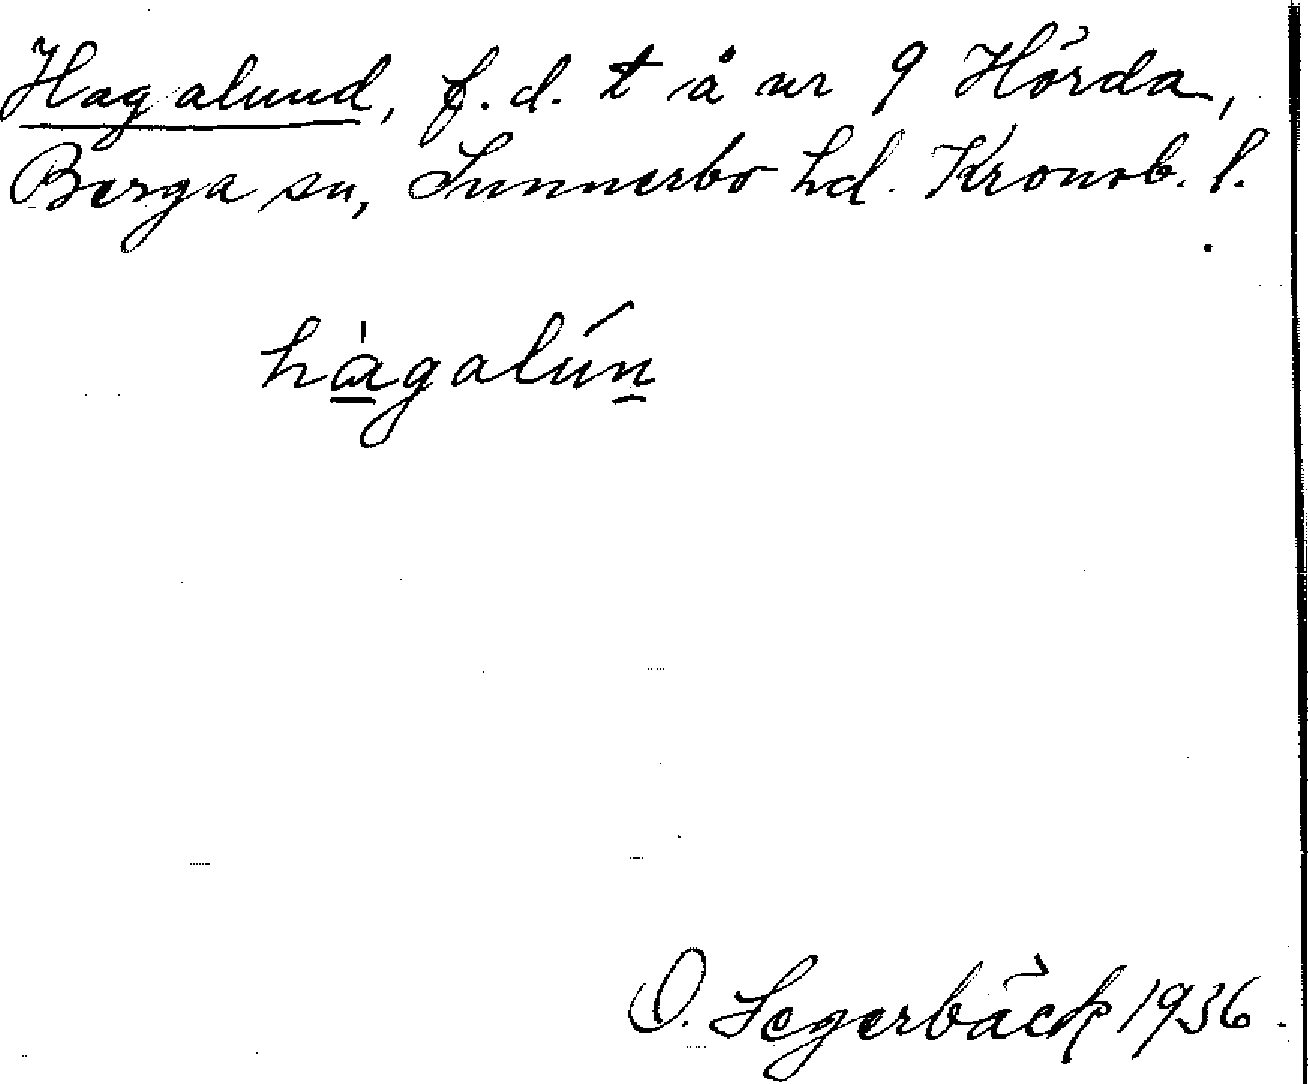 Hagalund, f.d. t å nr 9 Hörda,
Berga sn, Sunnerbo hd. Kronob. l.
hàgalún
O. Segerbäck 1936.